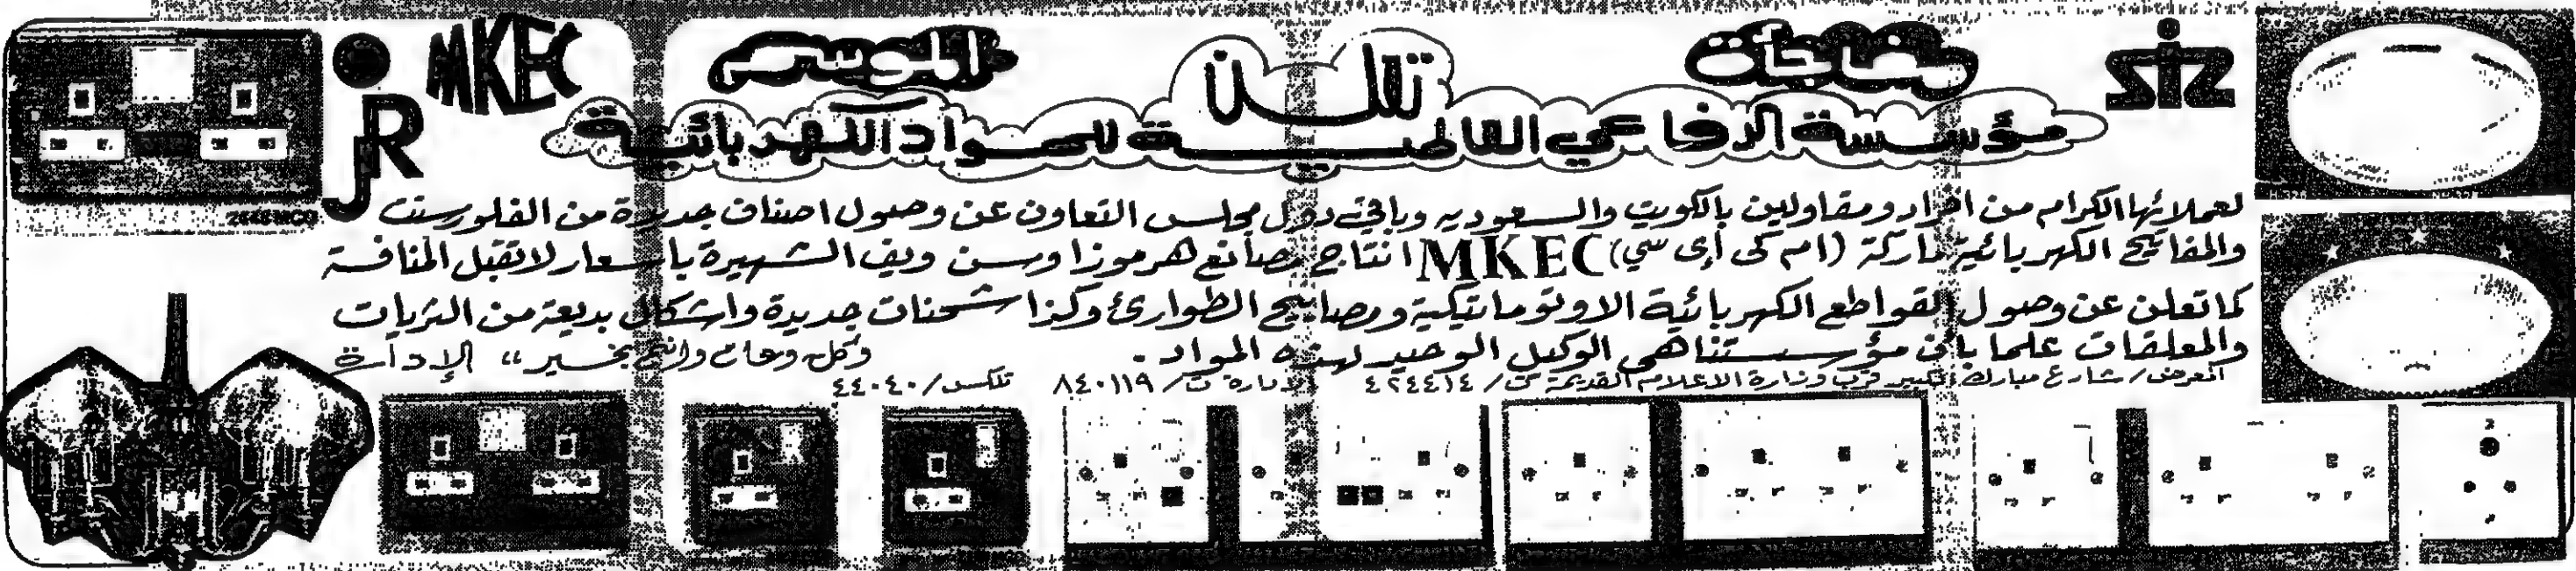 siz
مفاجآت
الموسم
MKEC
JR
تعلن
مؤسسة الرفاعي العالمية للمواد الكهربائية
لعملائها الكرام من افراد ومقاولين بالكويت والسعوديه وباقي دول مجلس التعاون عن وصول اصناف جديدة من الفلورسنت
والمفاتيح الكهربائية ماركة (ام كى إى سي) MKEC انتاج مصانع هرموزا وسن ويف الشهيرة باسعار لاتقبل المنافسة
كما تعلن عن وصول القواطع الكهربائية الاوتوماتيكية ومصابيح الطوارئ وكذا شحنات جديدة واشكال بديعة من الثريات
والمعلقات علما بأن مؤسستنا هى الوكيل الوحيد لهذه المواد.
وكل وعام وانتم بخير،، الإدارة
المعرض/ شارع مبارك الكبير قرب وزارة الاعلام القديمة ت/ ٤٢٤٤١٤ الادارة ت/ ٨٤٠١١٩ تلكس/ ٤٤٠٤٠